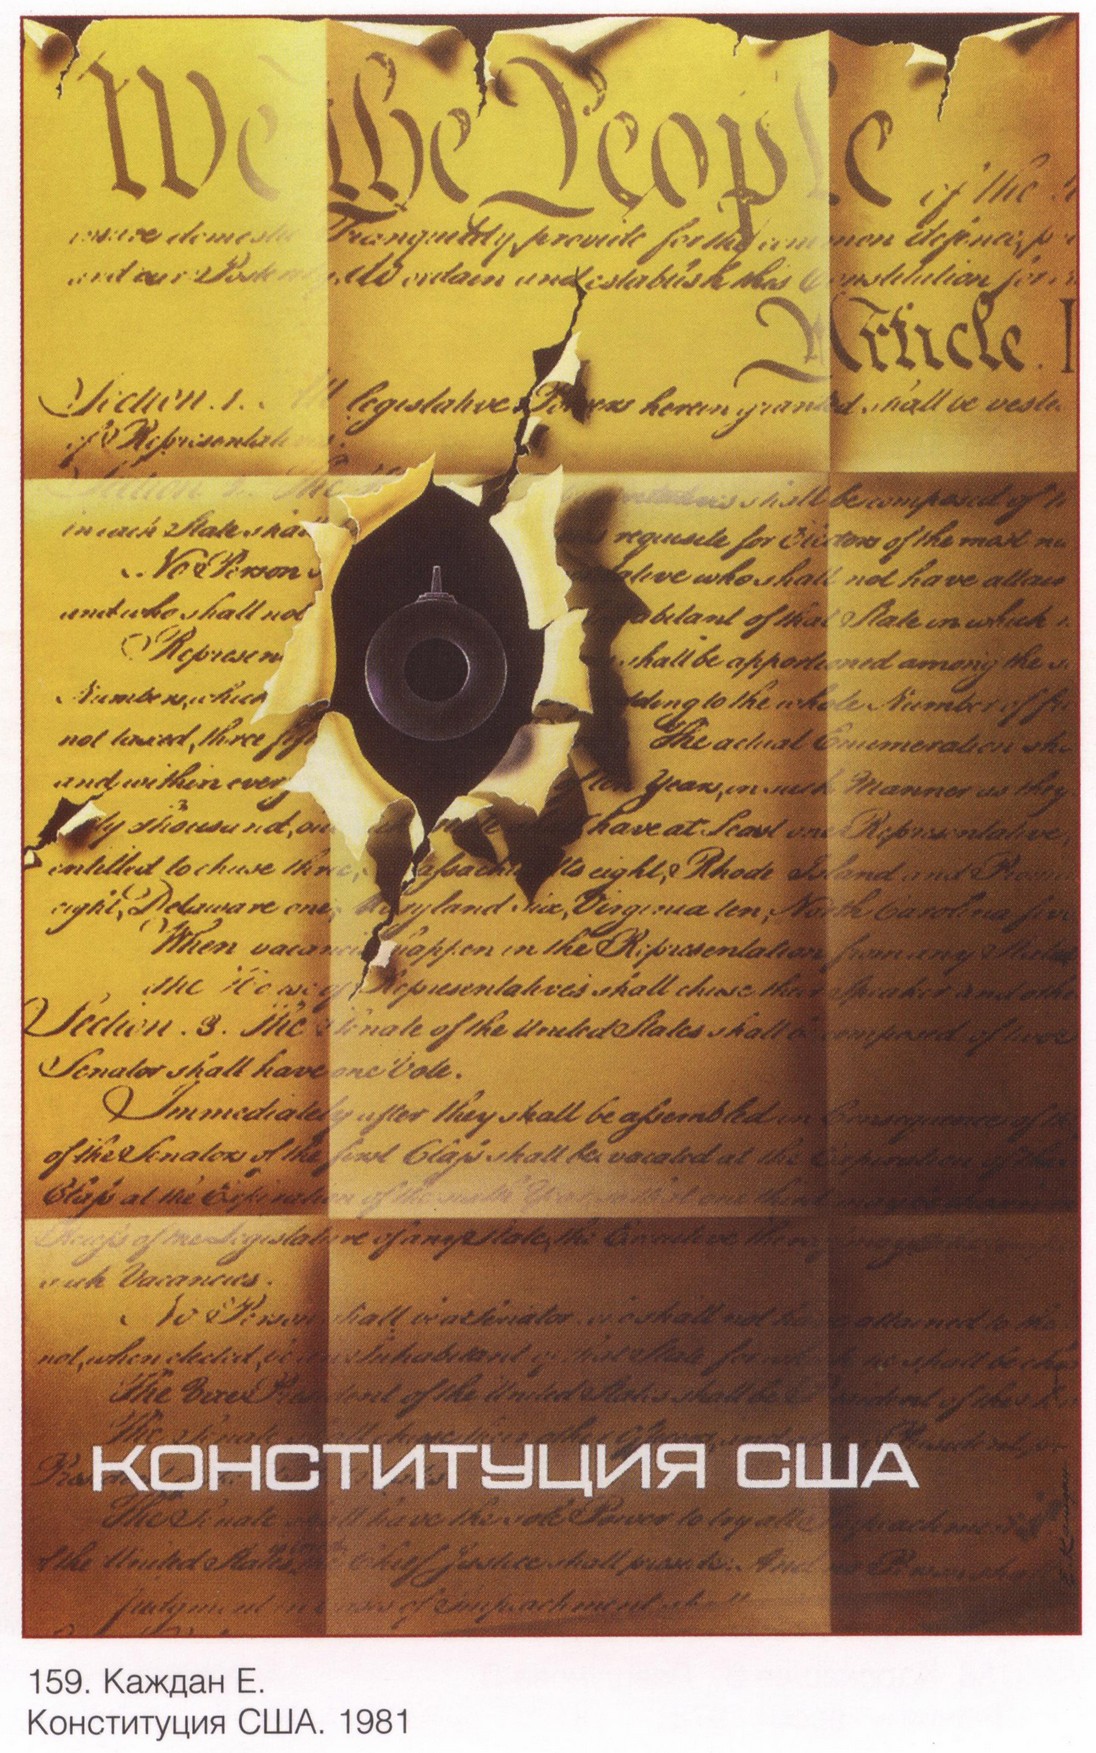 We the People of the
domestic Tranquility, provide for the common defence,
and our Posterity, do ordain and establish this Constitution for
Article. I
Section. 1. All legislative Powers herein granted shall be
of Representatives.
Section 2. The shall be composed of
in each State requisite for Electors of the most
No Person who shall not have
and who shall not of that State in which
shall be apportioned among the
Numbers, which to the whole Number of
not taxed, three The actual Enumeration
and within every Years, in such Manner as they
thousand, have at Least one Representative,
entitled to chuse three, eight, Rhode Island and
eight, Delaware one, Maryland six, Virginia ten, North Carolina
When vacancies happen in the Representation from any State
Representatives shall chuse their Speaker and
Section. 3. The Senate of the United States shall be composed of
Senator shall have one Vote.
Immediately after they shall be assembled in Consequence of
of the Senators of the first Class shall be vacated at the Expiration of the
Class at the Expiration of the
of the Legislature of any State, the Executive
such Vacancies.
No Person shall be a Senator who shall not have attained to the
not, when elected, be an Inhabitant of that State for which he shall be
The Vice President of the United States shall be President of the
The Senate shall chuse their other Officers, President,
КОНСТИТУЦИЯ США
The Senate shall have the sole Power to try all
the United States, the Chief Justice shall preside: And no Person
judgment in cases of impeachment
159. Каждан Е.
Конституция США. 1981